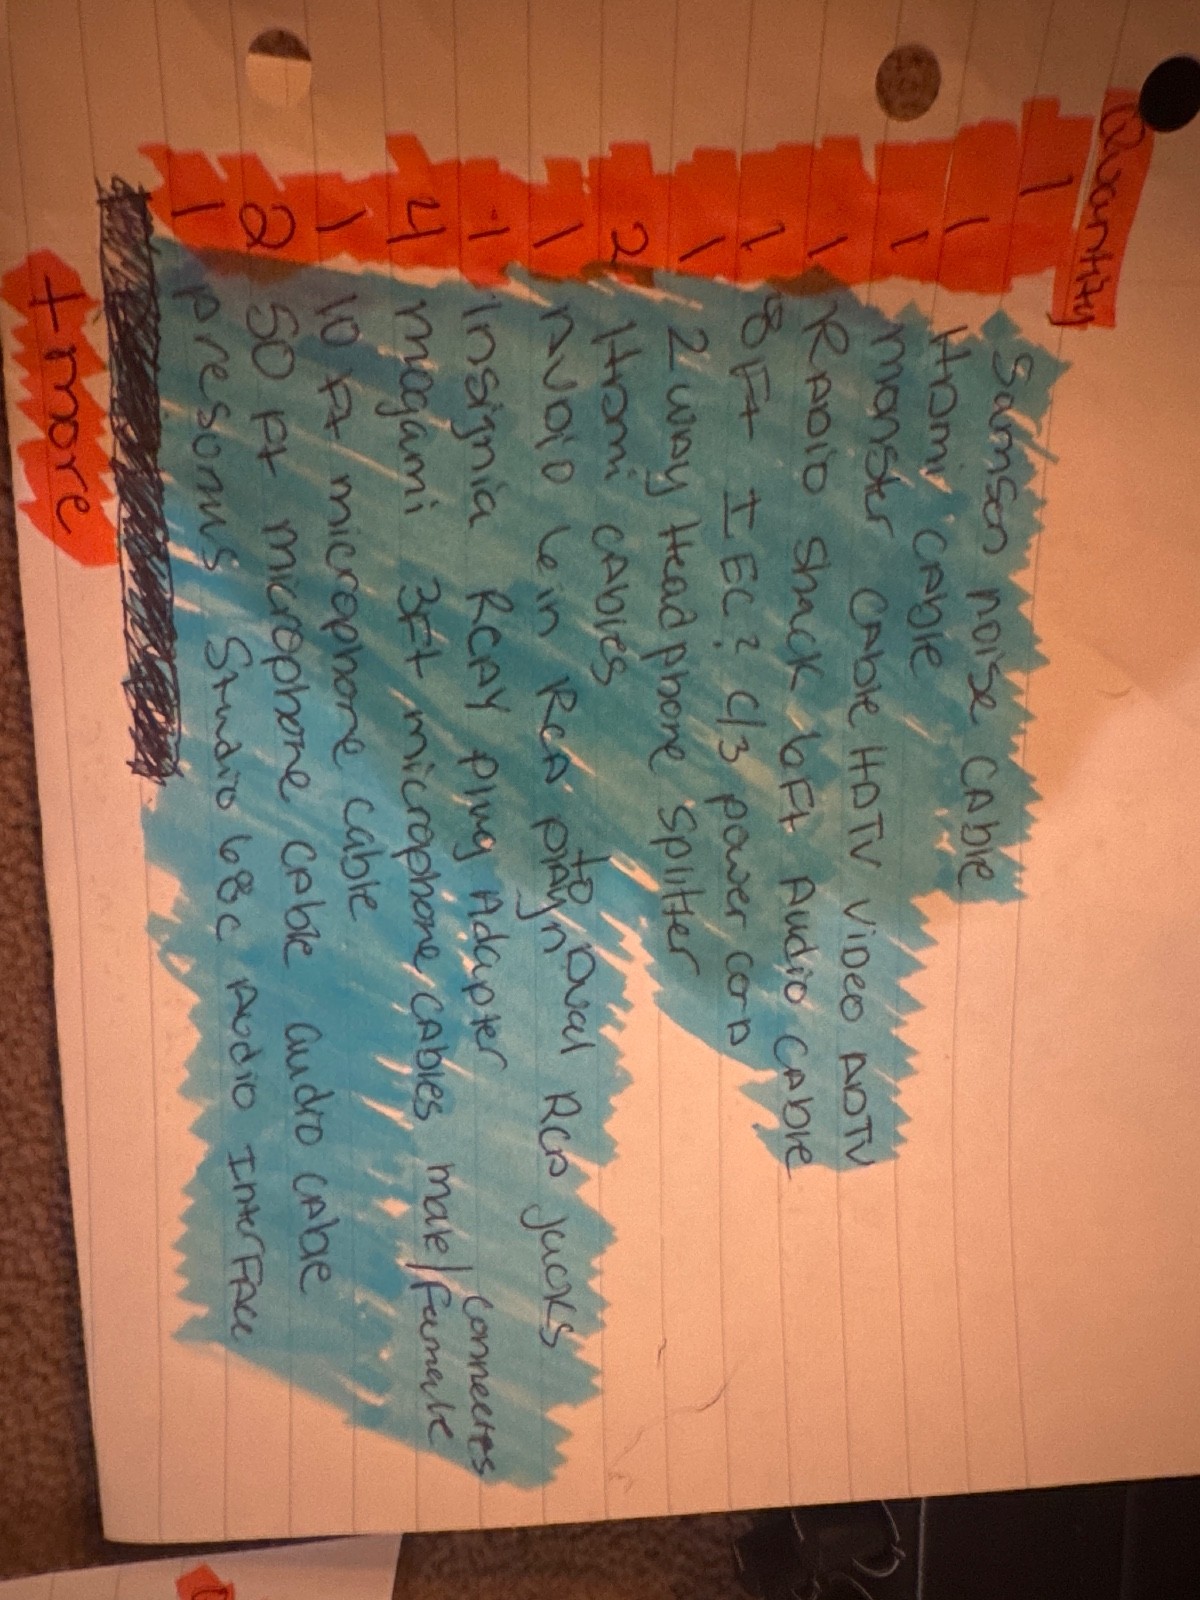 Quantity
1 Samson noise cable
1 HDmi cable
1 monster cable HDTV video ADTV
1 Radio shack 6Ft Audio cable
1 8 Ft IEC? C/3 power cord
1 2 way Headphone splitter
2 HDmi cables
1 AUDIO 6 in RCA to Dual RCA jacks
1 insignia RCAY plug Adapter
4 mogami 3Ft microphone cables male/female connecters
1 10 Ft microphone cable
2 50 Ft microphone cable audio cable
1 presonus Studio 68c Audio InterFace
+ more